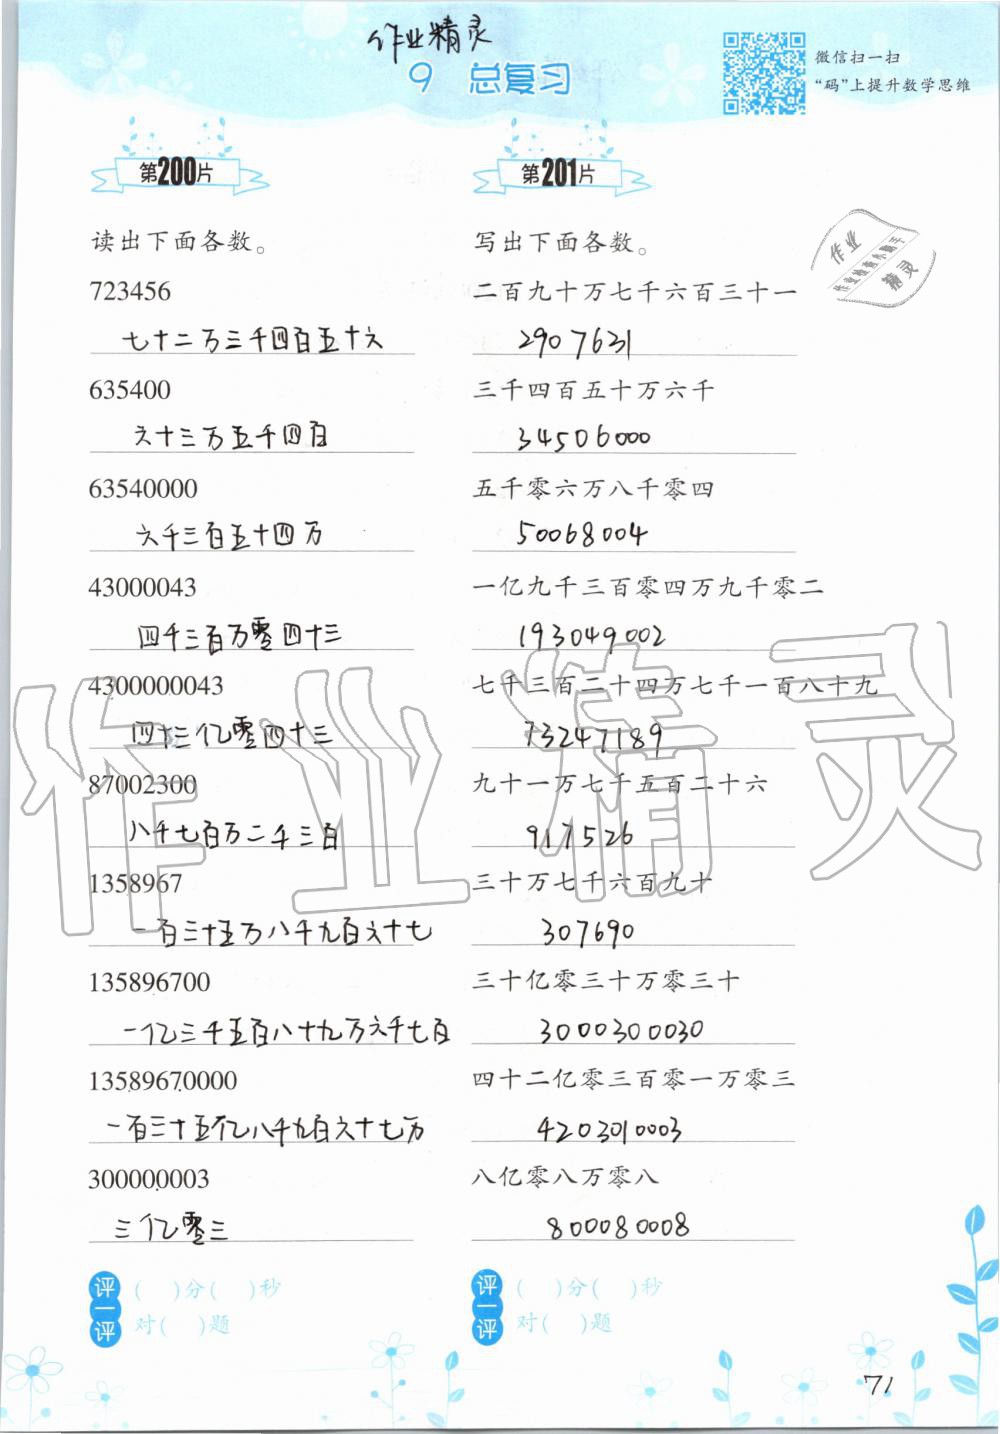 作业精灵
9 总复习
微信扫一扫
“码”上提升数学思维
第200片
读出下面各数。
723456
七十二万三千四百五十六
635400
六十三万五千四百
63540000
六千三百五十四万
43000043
四千三百万零四十三
4300000043
四十三亿零四十三
87002300
八千七百万二千三百
1358967
一百三十五万八千九百六十七
135896700
一亿三千五百八十九万六千七百
13589670000
一百三十五亿八千九百六十七万
300000003
三亿零三
评一评
( )分( )秒
对( )题
第201片
写出下面各数。
二百九十万七千六百三十一
2907631
三千四百五十万六千
34506000
五千零六万八千零四
50068004
一亿九千三百零四万九千零二
193049002
七千三百二十四万七千一百八十九
73247189
九十一万七千五百二十六
917526
三十万七千六百九十
307690
三十亿零三十万零三十
3000300030
四十二亿零三百零一万零三
4203010003
八亿零八万零八
800080008
评一评
( )分( )秒
对( )题
作业
精灵
作业精灵
71